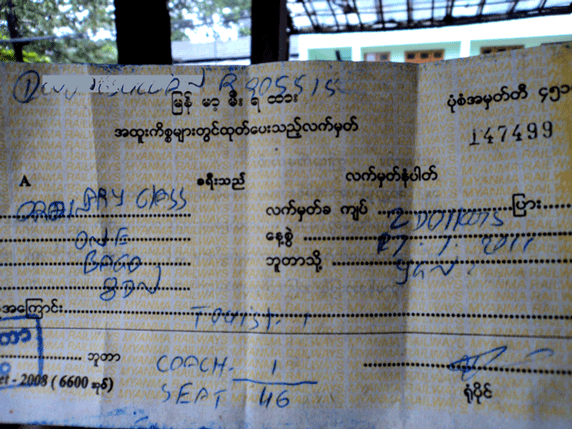 မြန် မာ့ မီး ရ ထား
ပုံစံအမှတ်တီ ၄၅၁
အထူးကိစ္စများတွင်ထုတ်ပေးသည့်လက်မှတ်
147499
A ခရီးသည် လက်မှတ်နံပါတ်
CLASS လက်မှတ်ခ ကျပ် 2 ပြား
ONE နေ့စွဲ 27. 1. 2011
BAGO ဘူတာသို့
အကြောင်း
Tourist. 1
ဘူတာ COACH. 1
- 2008 ( 6600 အုပ် ) SEAT 46 ရုံပိုင်